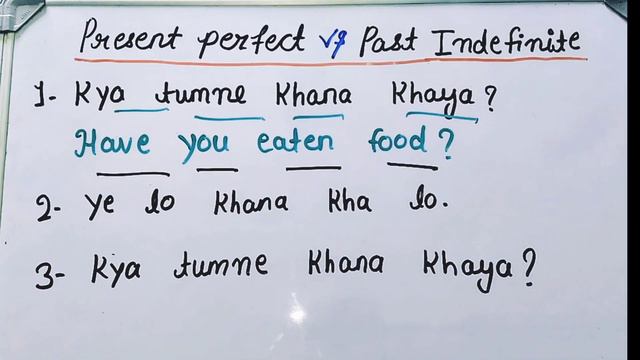 Present perfect vs Past Indefinite
1- Kya tumne Khana Khaya?
Have you eaten food?
2- Ye lo Khana Kha lo.
3- Kya tumne Khana Khaya?